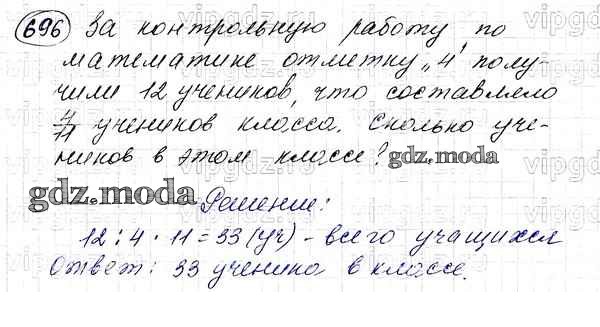 696 За контрольную работу по
математике отметку „4" полу-
чили 12 учеников, что составляло
4/11 учеников класса. Сколько уче-
ников в этом классе? gdz.moda
gdz.moda Решение:
12 : 4 · 11 = 33 (уч) - всего учащихся
Ответ: 33 ученика в классе.